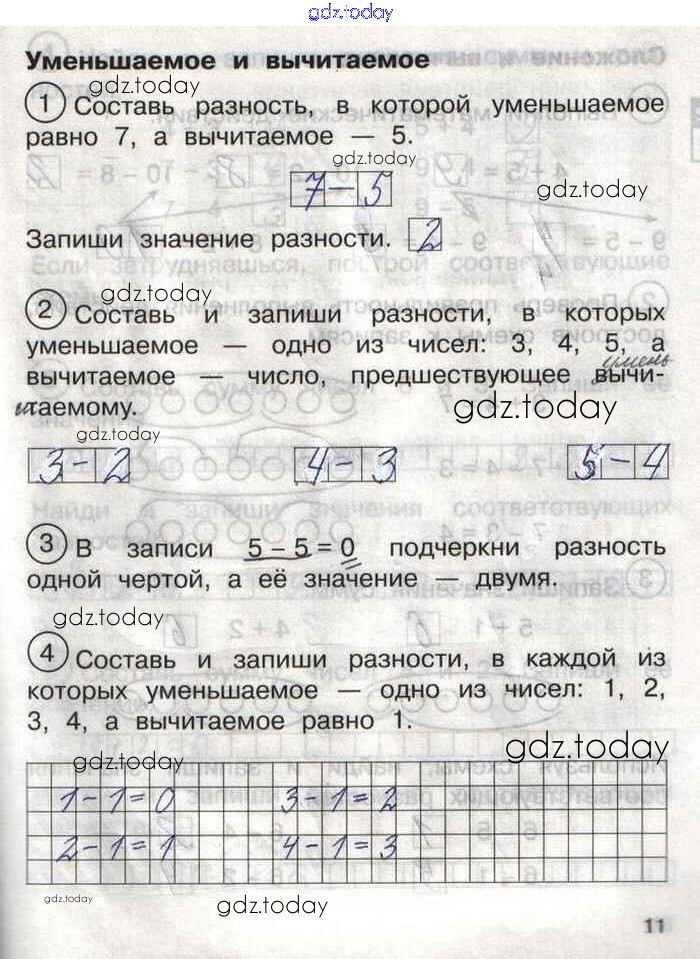 gdz.today
Уменьшаемое и вычитаемое
gdz.today
1 Составь разность, в которой уменьшаемое
равно 7, а вычитаемое — 5.
gdz.today
7 – 5
gdz.today
Запиши значение разности. 2
gdz.today
2 Составь и запиши разности, в которых
уменьшаемое — одно из чисел: 3, 4, 5, а
умень
вычитаемое — число, предшествующее вычи-
таемому.
gdz.today
gdz.today
3 – 2 4 – 3 5 – 4
3 В записи 5 – 5 = 0 подчеркни разность
одной чертой, а её значение — двумя.
gdz.today
4 Составь и запиши разности, в каждой из
которых уменьшаемое — одно из чисел: 1, 2,
3, 4, а вычитаемое равно 1.
gdz.today
gdz.today
1 – 1 = 0 3 – 1 = 2
2 – 1 = 1 4 – 1 = 3
gdz.today
gdz.today
11